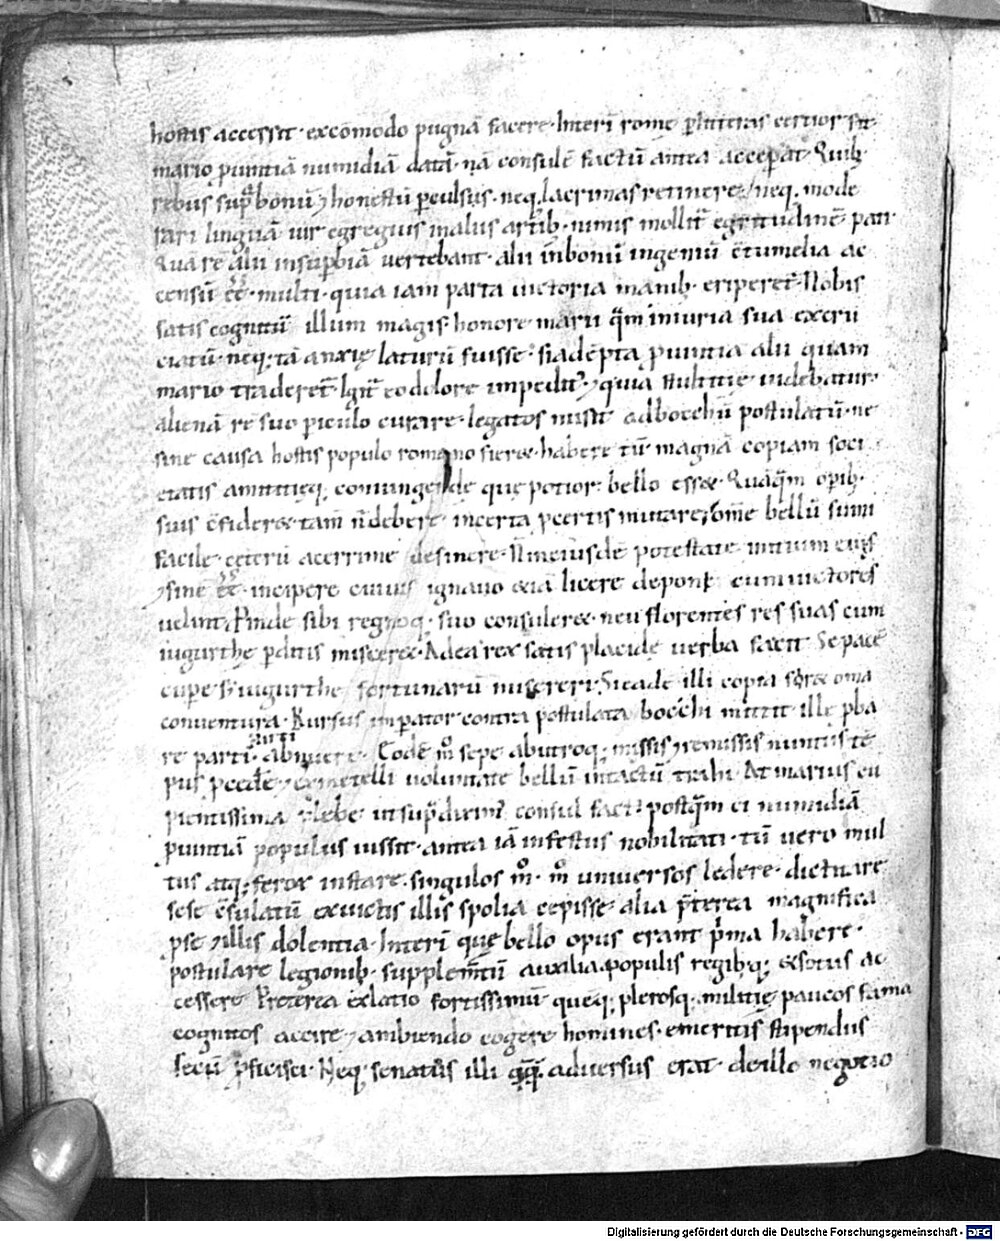 hostis accessit · excōmodo pugnā facere · Interī rome p litteras certior fit
mario puintiā numidiā datā · nā consulē factū antea acceperat · Quib;
rebus supͣ bonū ⁊ honestū perculsus · neq; lacrimas retinere · neq; mode
rari linguā uir egregius malus artib; nimis mollit̄ egritudinē pati
Qua re alii insupbiā uertebant · alii inbonū ingeniū cōtumelia ac
censū ēē · multi · quia iam parta uictoria manib; eriperet̄ · Nobis
satis cognitū illum magis honore marii q̄m iniuria sua excru
ciatū · neq; tā anxię laturū fuisse · si adēpta puintia alii quam
mario traderet̄ · Igit̄ eo dolore impedit᷒ ⁊ quia stultitię uidebatur ·
alienā rē suo piculo curare · legatos misit ad bocchū postulatū · ne
sine causa hostis populo romano fier& · habere tū magnā copiam soci
etatis amititięq; coniungendę quę potior bello ess& · Quāq̄m opib;
suis cōfider& tam̄ ñ debere incerta p certis mutare · Om̄e bellū sumi
facile · cęterū acerrime desinere · Ñ in eiusdē potestate initium eius
⁊ sinē ēē · incipere cuiuis ignauo &iā licere deponi · cum uictores
uelint · Pinde sibi regnoq; suo consuler& · neu florentes res suas cum
iugurthe pditis miscer& · Ad ea rex satis placide uerba facit · Se pacē
cupe s; iugurthe fortunarū misereri · Si eadē illi copia fier& om̄a
conuentura · Rursus impator contra postulata bocchi mittit · ille pba
re parti · abnuere · Eodē m̊ sepe abutroq; missis ⁊ remissis nuntiis tē
pus pcedē ⁊ ex metelli uoluntate bellū intactū trahi · At marius cu
pientissima plebe ut supͣ diximᷓ consul fact᷒ · postq̄m ei numidiā
puintiā populus iussit · antea iā infestus nobilitati · tū uero mul
tus atq; ferox instare · singulos m̊ · m̊ uniuersos ledere · dictitare
sese cōsulatū exuictis illis spolia cepisse · alia p̄terea magnifica
p se ⁊ illis dolentia · Interī quę bello opus erant p̄ma habere ·
postulare legionib; supplem̄tū auxilia · apopulis regibq; & sociis ac
cessere Preterea exlatio fortissimū quęq; plerosq; militię paucos fama
cognitos accire ⁊ ambiendo cogere homines · emeritis stipendiis
secū pficisci · Neq; senatus illi q̄q̄ aduersus erat · de illo negotio
Digitalisierung gefördert durch die Deutsche Forschungsgemeinschaft - DFG